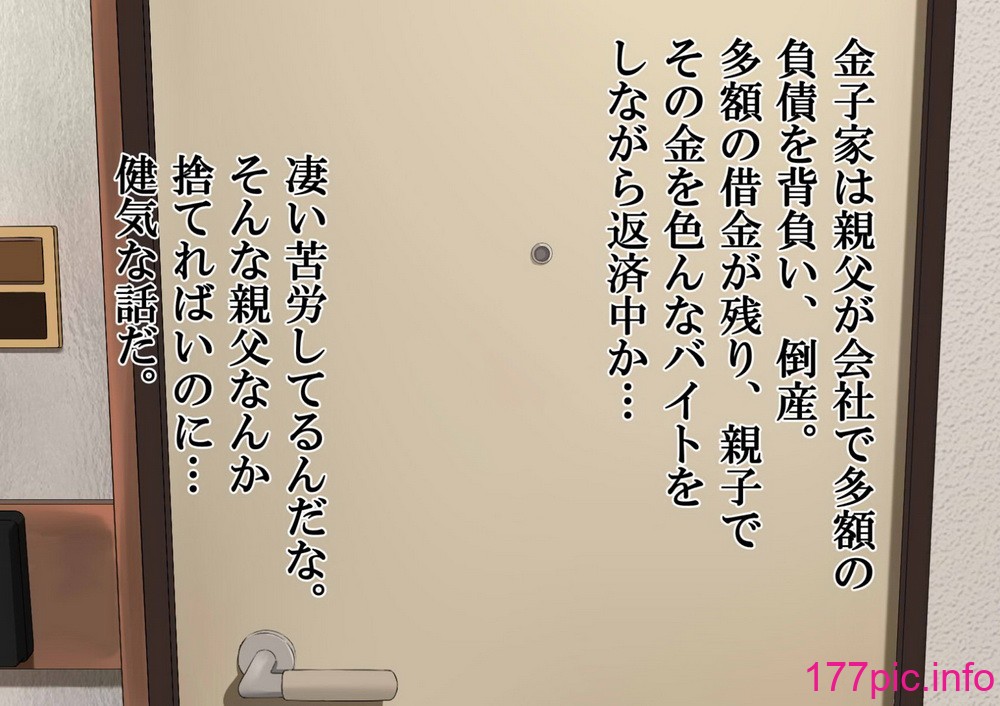 金子家は親父が会社で多額の
負債を背負い、倒産。
多額の借金が残り、親子で
その金を色んなバイトを
しながら返済中か…
凄い苦労してるんだな。
そんな親父なんか
捨てればいのに…
健気な話だ。
177pic.info